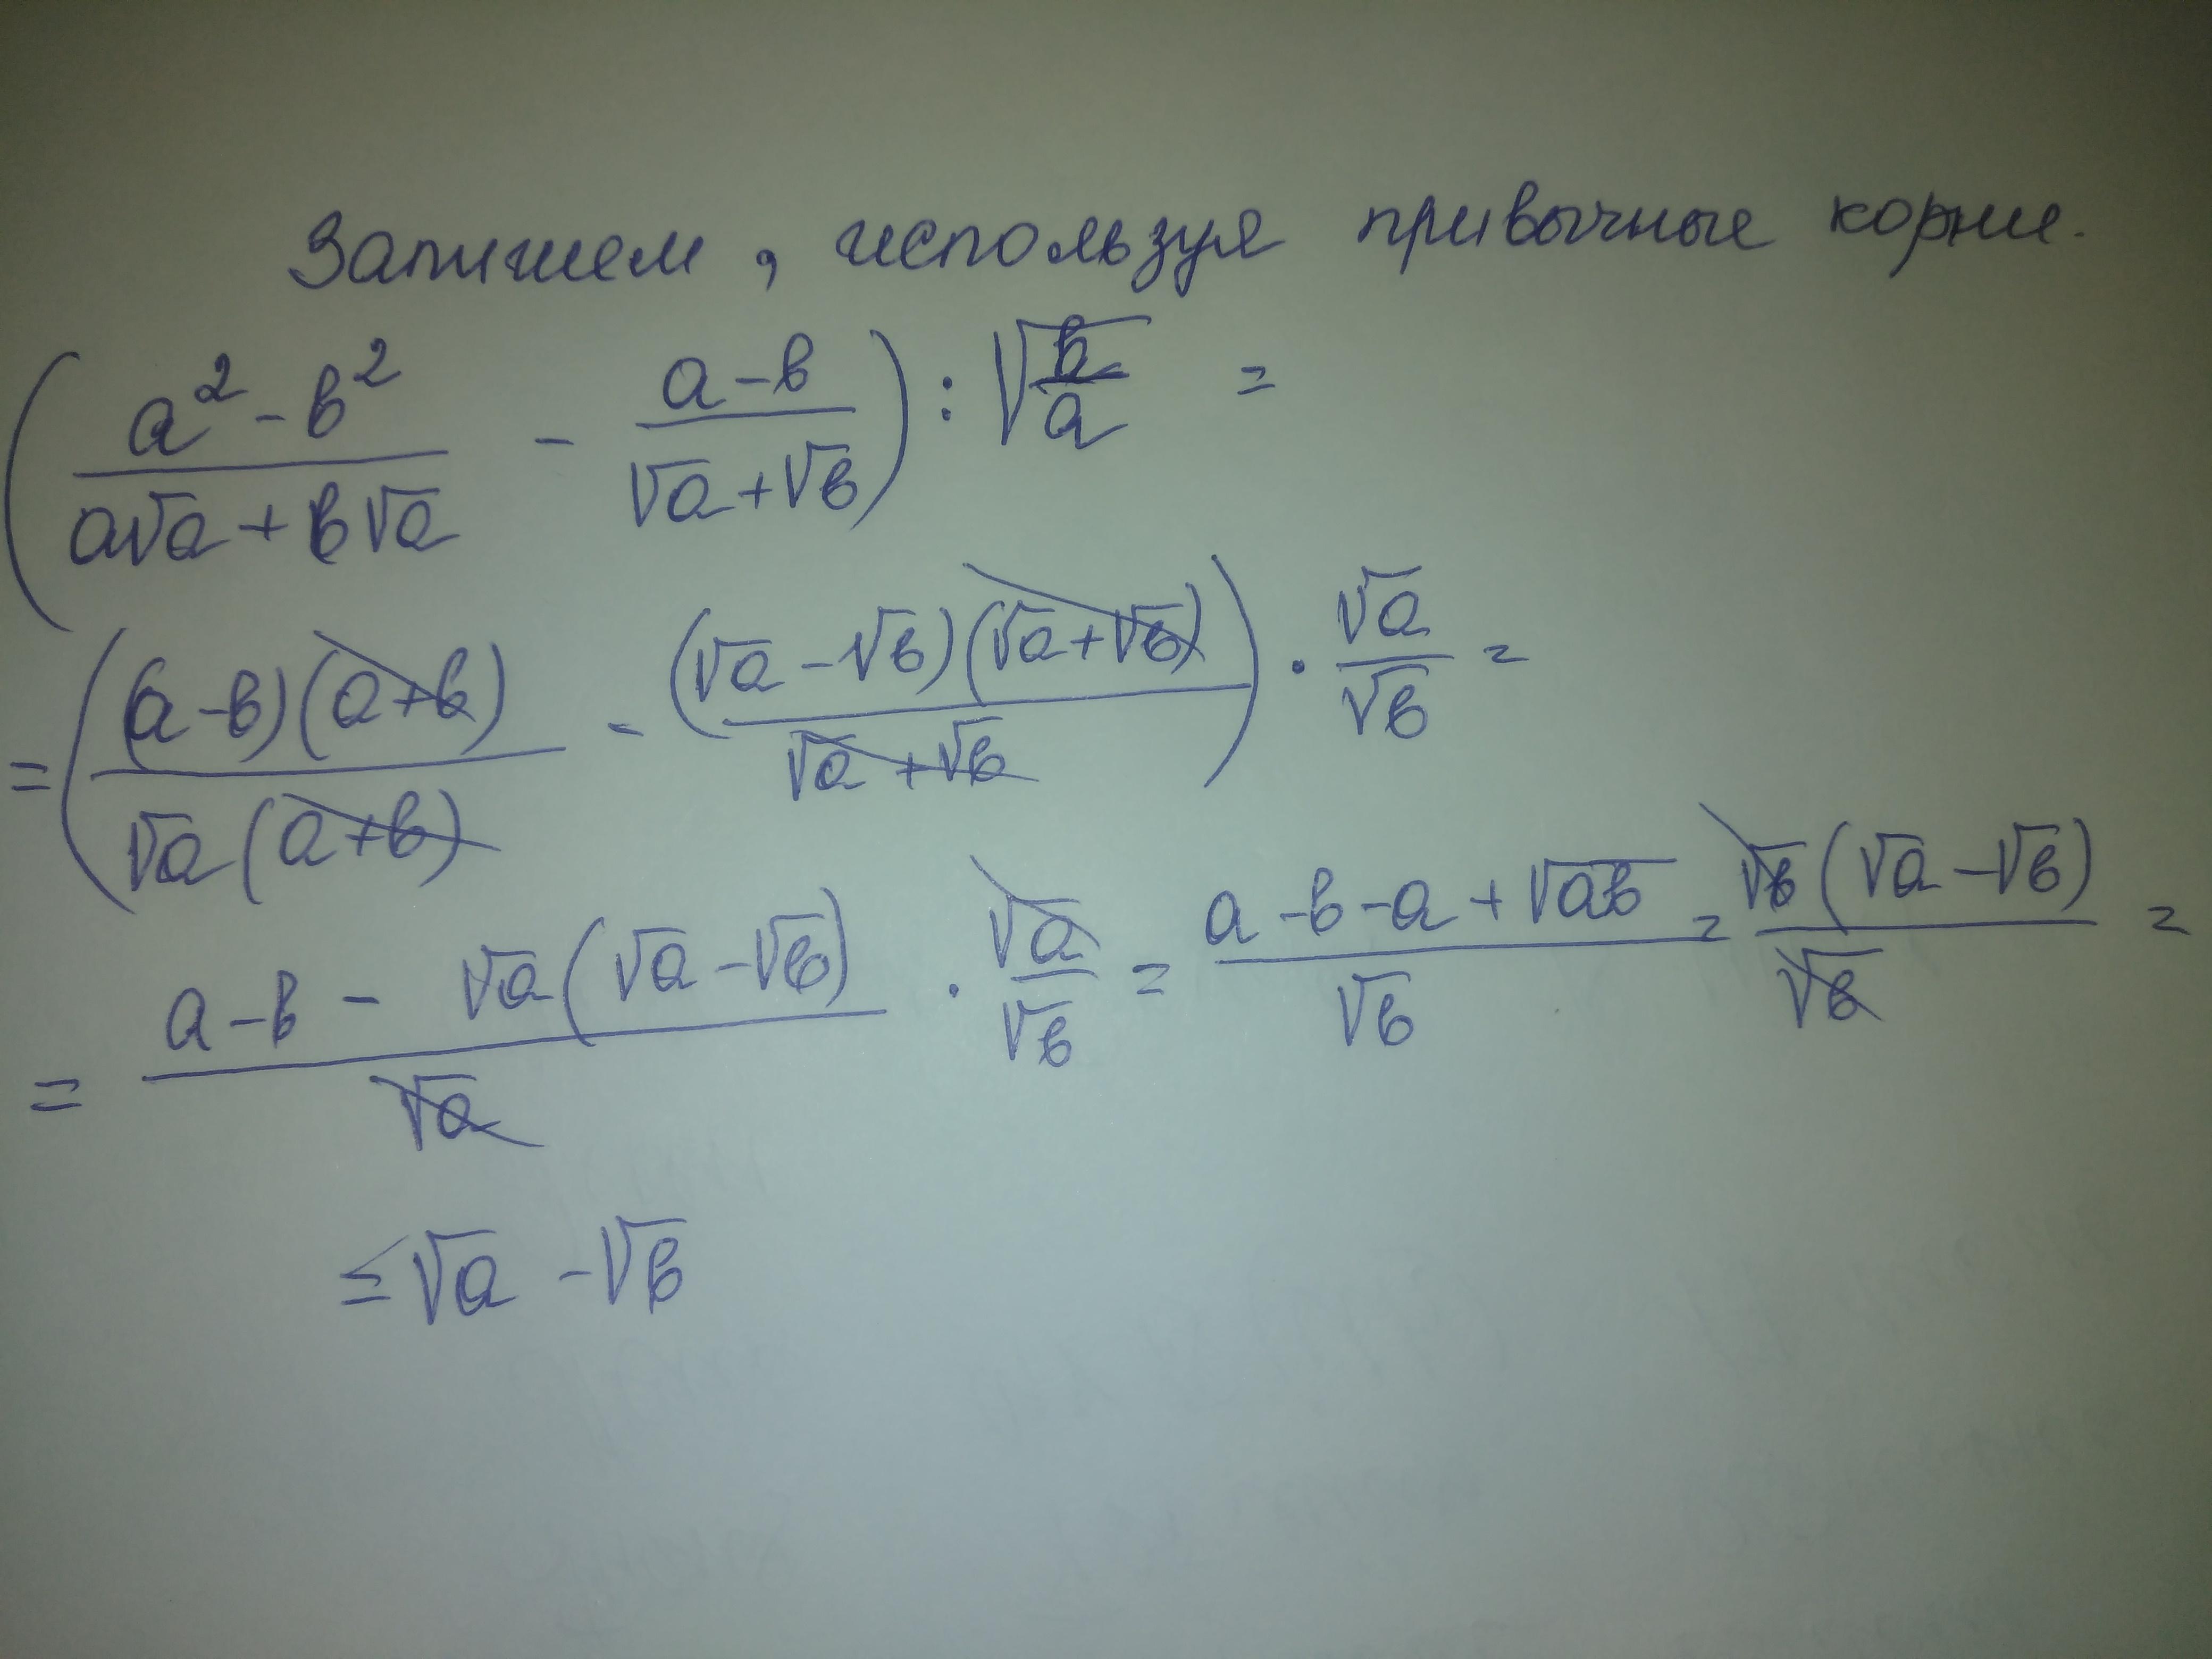 Запишем, используя привычные корни.
(a² - b²)/(a√a + b√a) - (a - b)/(√a + √b)) : √(b/a) =
= ((a - b)(a + b)/(√a(a + b)) - (√a - √b)(√a + √b)/(√a + √b)) · √a/√b =
= (a - b - √a(√a - √b))/√a · √a/√b = (a - b - a + √ab)/√b = √b(√a - √b)/√b =
= √a - √b